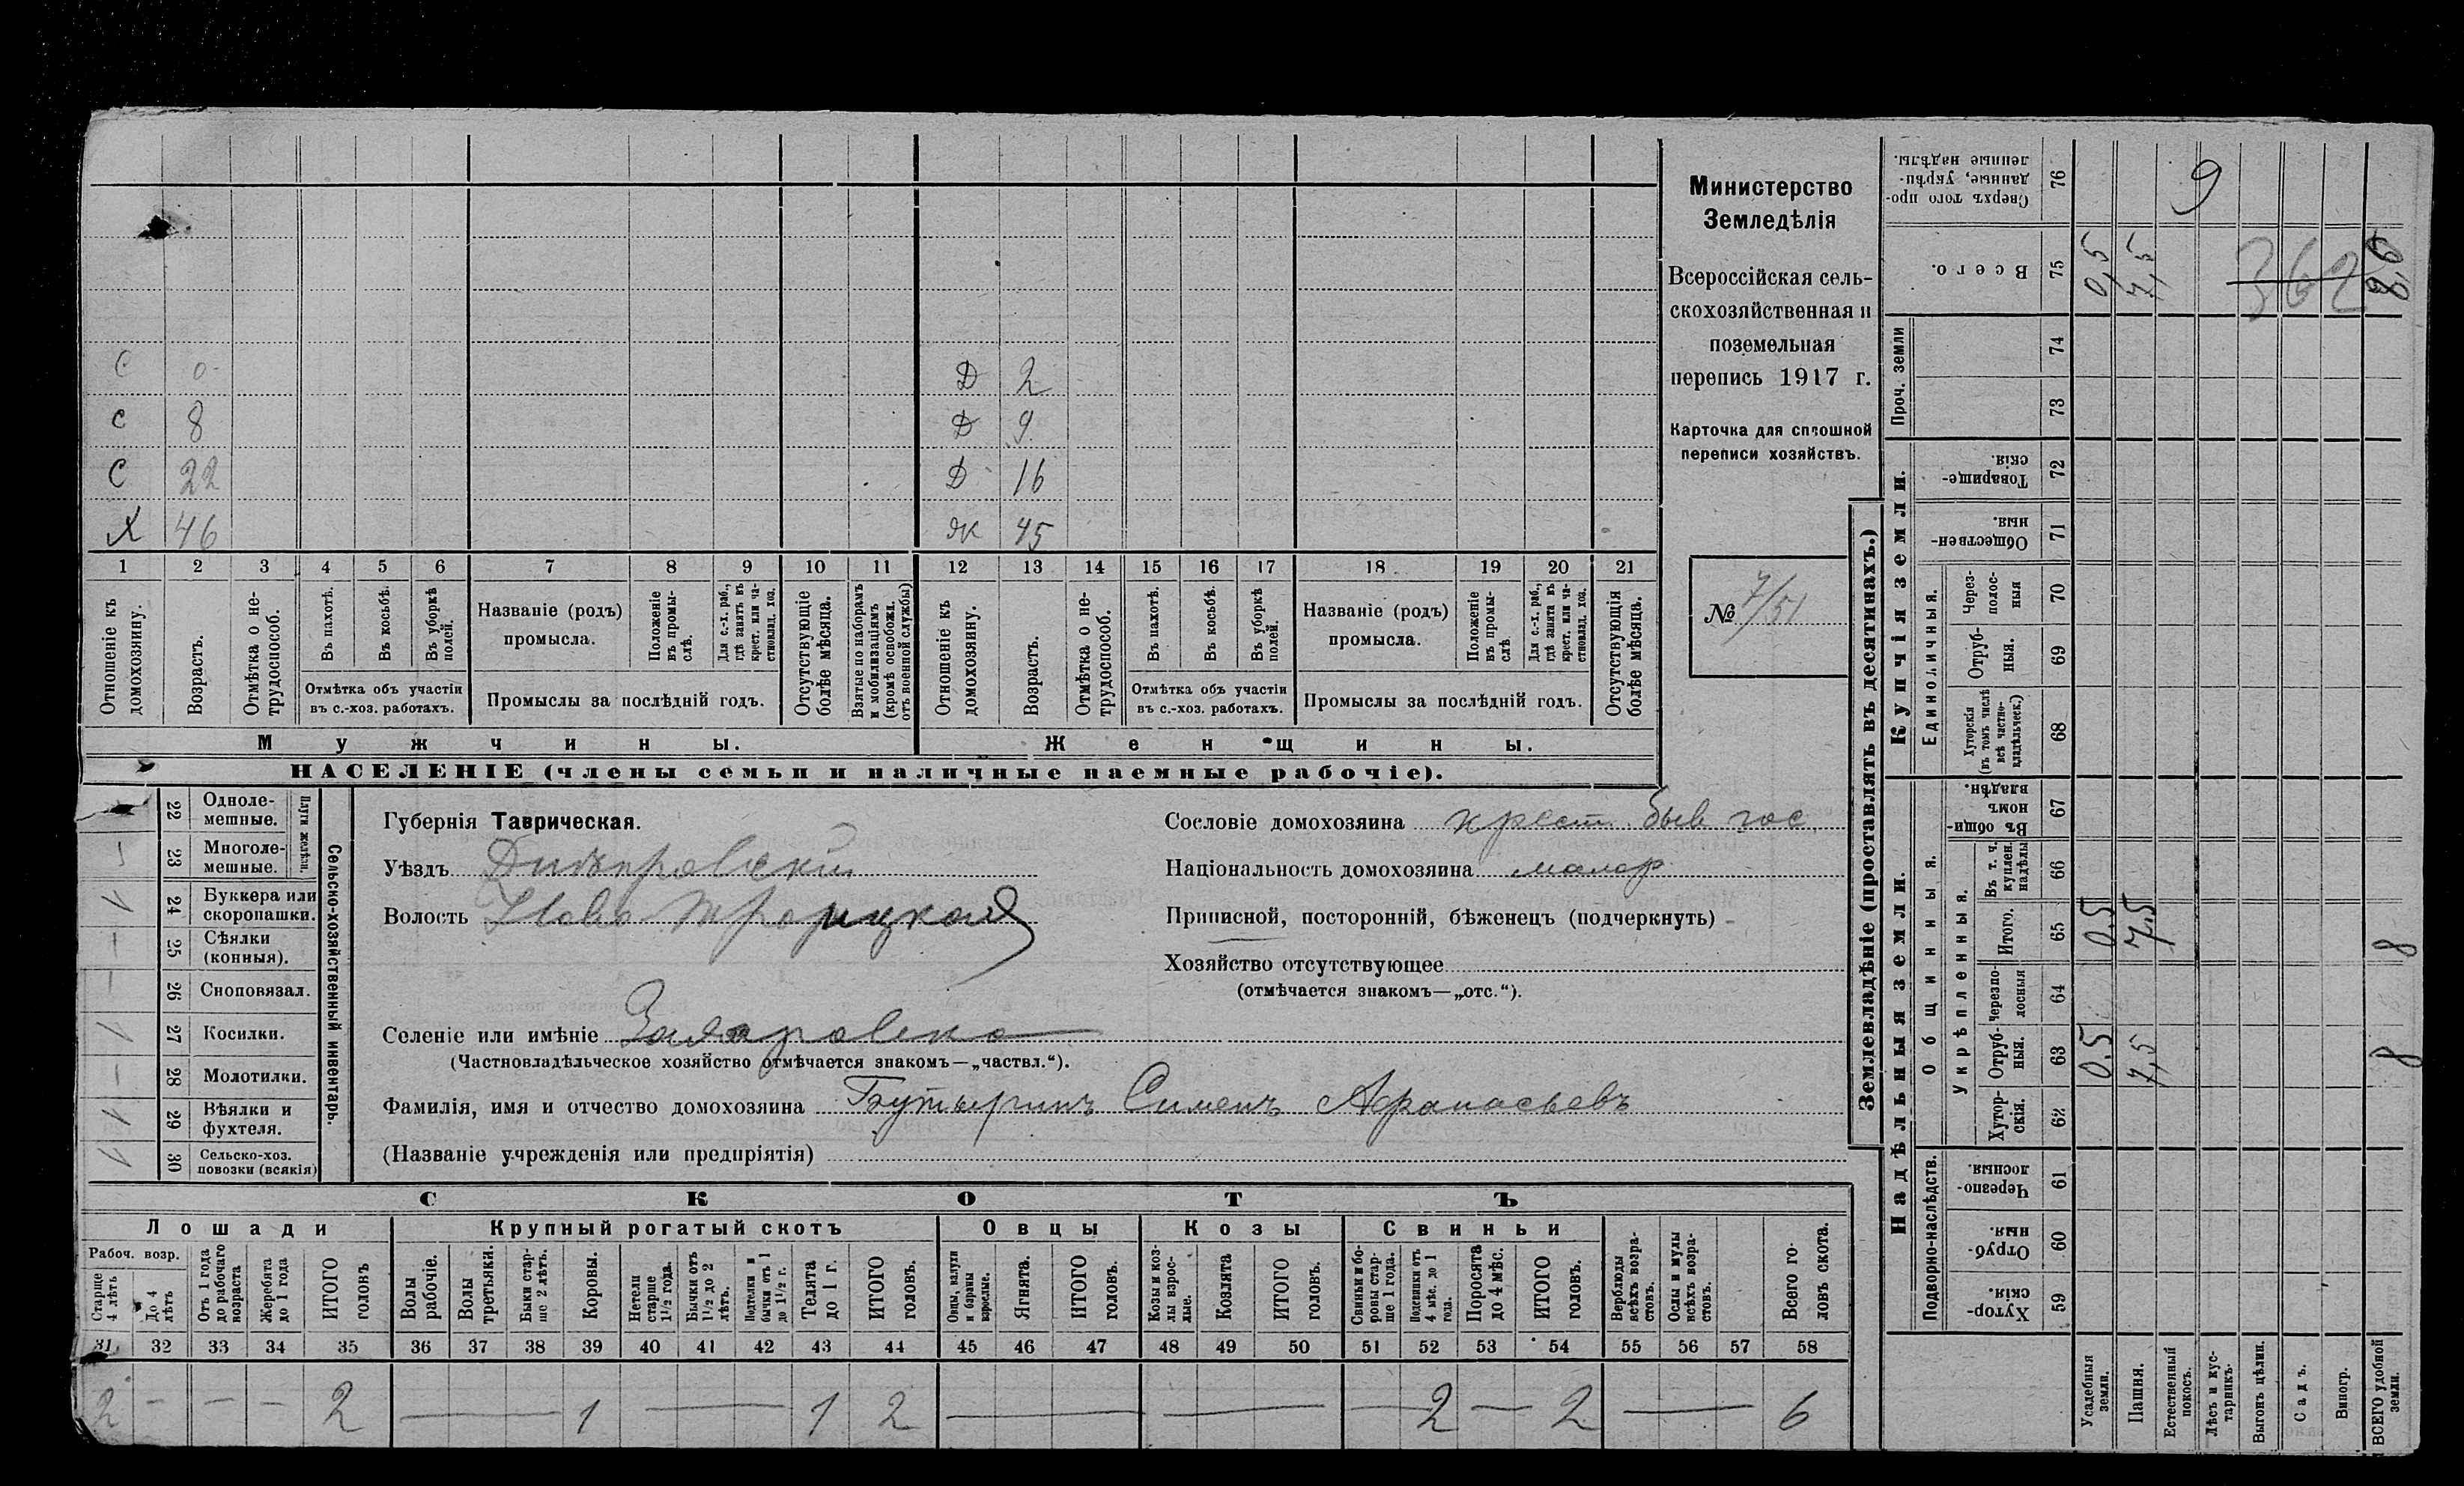 С 0 Д 2
С 8 Д 9
С 22 Д 16
Х 46 Ж 45
1 2 3 4 5 6 7 8 9 10 11 12 13 14 15 16 17 18 19 20 21
Отношеніе къ домохозяину.
Возрастъ.
Отмѣтка о не-
трудоспособ.
Въ пахотѣ.
Въ косьбѣ.
Въ уборкѣ
полей.
Отмѣтка объ участіи
въ с.-хоз. работахъ.
Названіе (родъ)
промысла.
Положеніе
въ промы-
слѣ.
Для с.-х. раб.,
гдѣ занятъ въ
крест. или ча-
стновлад. хоз.
Промыслы за послѣдній годъ.
Отсутствующіе
болѣе мѣсяца.
Взятые по наборамъ
и мобилизаціямъ
(кромѣ освобожд.
отъ военной службы)
Отношеніе къ
домохозяину.
Возрастъ.
Отмѣтка о не-
трудоспособ.
Въ пахотѣ.
Въ косьбѣ.
Въ уборкѣ
полей.
Отмѣтка объ участіи
въ с.-хоз. работахъ.
Названіе (родъ)
промысла.
Положеніе
въ промы-
слѣ
Для с.-х. раб.,
гдѣ занята въ
крест. или ча-
стновлад. хоз.
Промыслы за послѣдній годъ.
Отсутствующія
болѣе мѣсяца.
Мужчины. Женщины.
НАСЕЛЕНІЕ (члены семьи и наличные наемные рабочіе).
Министерство
Земледѣлія
Всероссійская сель-
скохозяйственная и
поземельная
перепись 1917 г.
Карточка для сплошной
переписи хозяйствъ.
№ 7/51
Сельско-хозяйственный инвентарь.
Плуги желѣзн.
22 Одноле-
мешные.
23 Многоле-
мешные.
24 Буккера или
скоропашки.
25 Сѣялки
(конныя).
26 Сноповязал.
27 Косилки.
28 Молотилки.
29 Вѣялки и
фухтеля.
30 Сельско-хоз.
повозки (всякія)
Губернія Таврическая.
Уѣздъ Днѣпровскій
Волость Ново Троицкая
Селеніе или имѣніе
(Частновладѣльческое хозяйство отмѣчается знакомъ—„частвл.“).
Фамилія, имя и отчество домохозяина Бутыринъ Сименъ Афанасьевъ
(Названіе учрежденія или предпріятія)
Сословіе домохозяина крест. быв гос.
Національность домохозяина малор
Приписной, посторонній, бѣженецъ (подчеркнуть)
Хозяйство отсутствующее
(отмѣчается знакомъ—„отс.“).
СКОТЪ
Лошади Крупный рогатый скотъ Овцы Козы Свиньи
Рабоч. возр.
Старше
4 лѣтъ
До 4
лѣтъ
Отъ 1 года
до рабочаго
возраста
Жеребята
до 1 года
ИТОГО
головъ
Волы
рабочіе.
Волы
третьяки.
Быки стар-
ше 2 лѣтъ.
Коровы.
Нетели
старше
1½ года.
Бычки отъ
1½ до 2
лѣтъ.
Подтелки и
бычки отъ 1
до 1½ г.
Телята
до 1 г.
ИТОГО
головъ.
Овцы, валухи
и бараны
взрослые.
Ягнята.
ИТОГО
головъ.
Козы и коз-
лы взрос-
лые.
Козлята
ИТОГО
головъ.
Свиньи и бо-
ровы стар-
ше 1 года.
Подсвинки отъ
4 мѣс. до 1
года.
Поросята
до 4 мѣс.
ИТОГО
головъ.
Верблюды
всѣхъ возра-
стовъ.
Ослы и мулы
всѣхъ возра-
стовъ.
Всего го-
ловъ скота.
31 32 33 34 35 36 37 38 39 40 41 42 43 44 45 46 47 48 49 50 51 52 53 54 55 56 57 58
2 — — — 2 — 1 — 1 2 — — — 2 — 2 — 6
Землевладѣніе (проставлять въ десятинахъ.)
Надѣльныя земли. Купчія земли. Проч. земли
Подворно-наслѣдств.
Общинныя.
Укрѣпленныя.
Единоличныя.
Хутор-
скія. 59
Отруб-
ныя. 60
Черезпо-
лосныя. 61
Хутор-
скія. 62
Отруб-
ныя. 63 0.5 7,5 8
Черезпо-
лосныя 64
Итого. 65 0.5 7.5 8
Въ т. ч.
куплен.
надѣлы 66
Въ общин-
номъ
владѣн. 67
Хуторскія
(въ томъ числѣ
всѣ частно-
владѣльческ.) 68
Отруб-
ныя. 69
Через-
полос-
ныя 70
Обществен-
ныя. 71
Товарище-
скія. 72
73
74
Всего. 75 0,5 7,5 362 8,0
Сверхъ того про-
данные, укрѣп-
ленные надѣлы. 76 9
Усадебныя
земли.
Пашня.
Естественный
покосъ.
Лѣсъ и кус-
тарникъ.
Выгонъ цѣлин.
Садъ.
Виногр.
ВСЕГО удобной
земли.